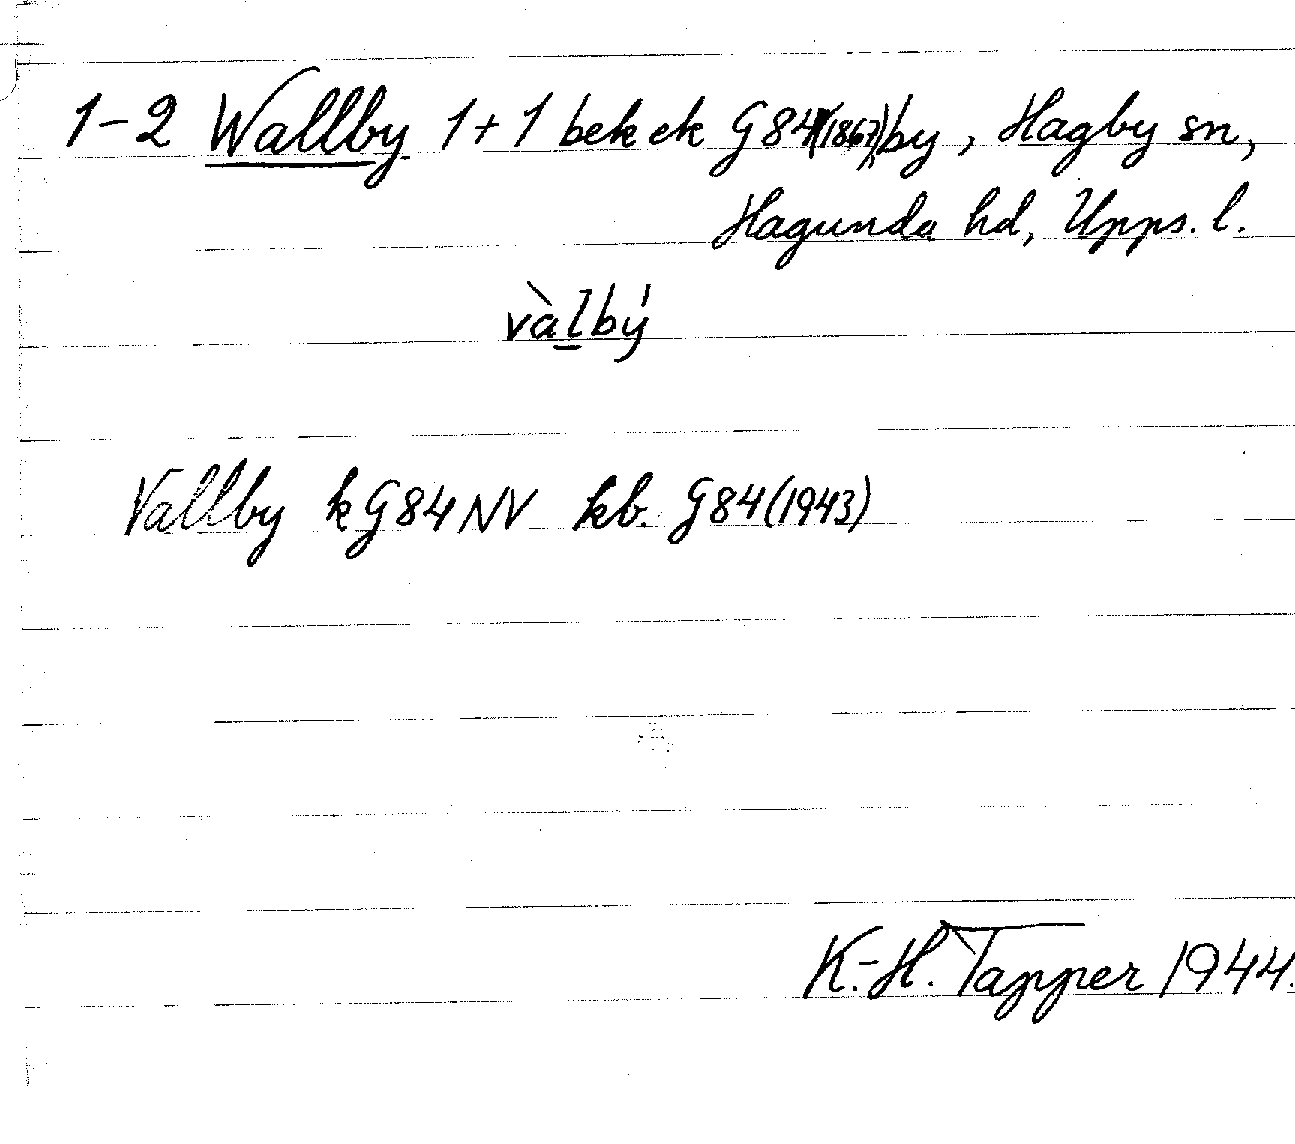 1-2 Wallby 1+1 bek ek G84(1867) by, Hagby sn,
Hagunda hd, Upps. l.
vàlbý
Vallby k G84NV kb. G84(1943)
K.-H. Tapper 1944.